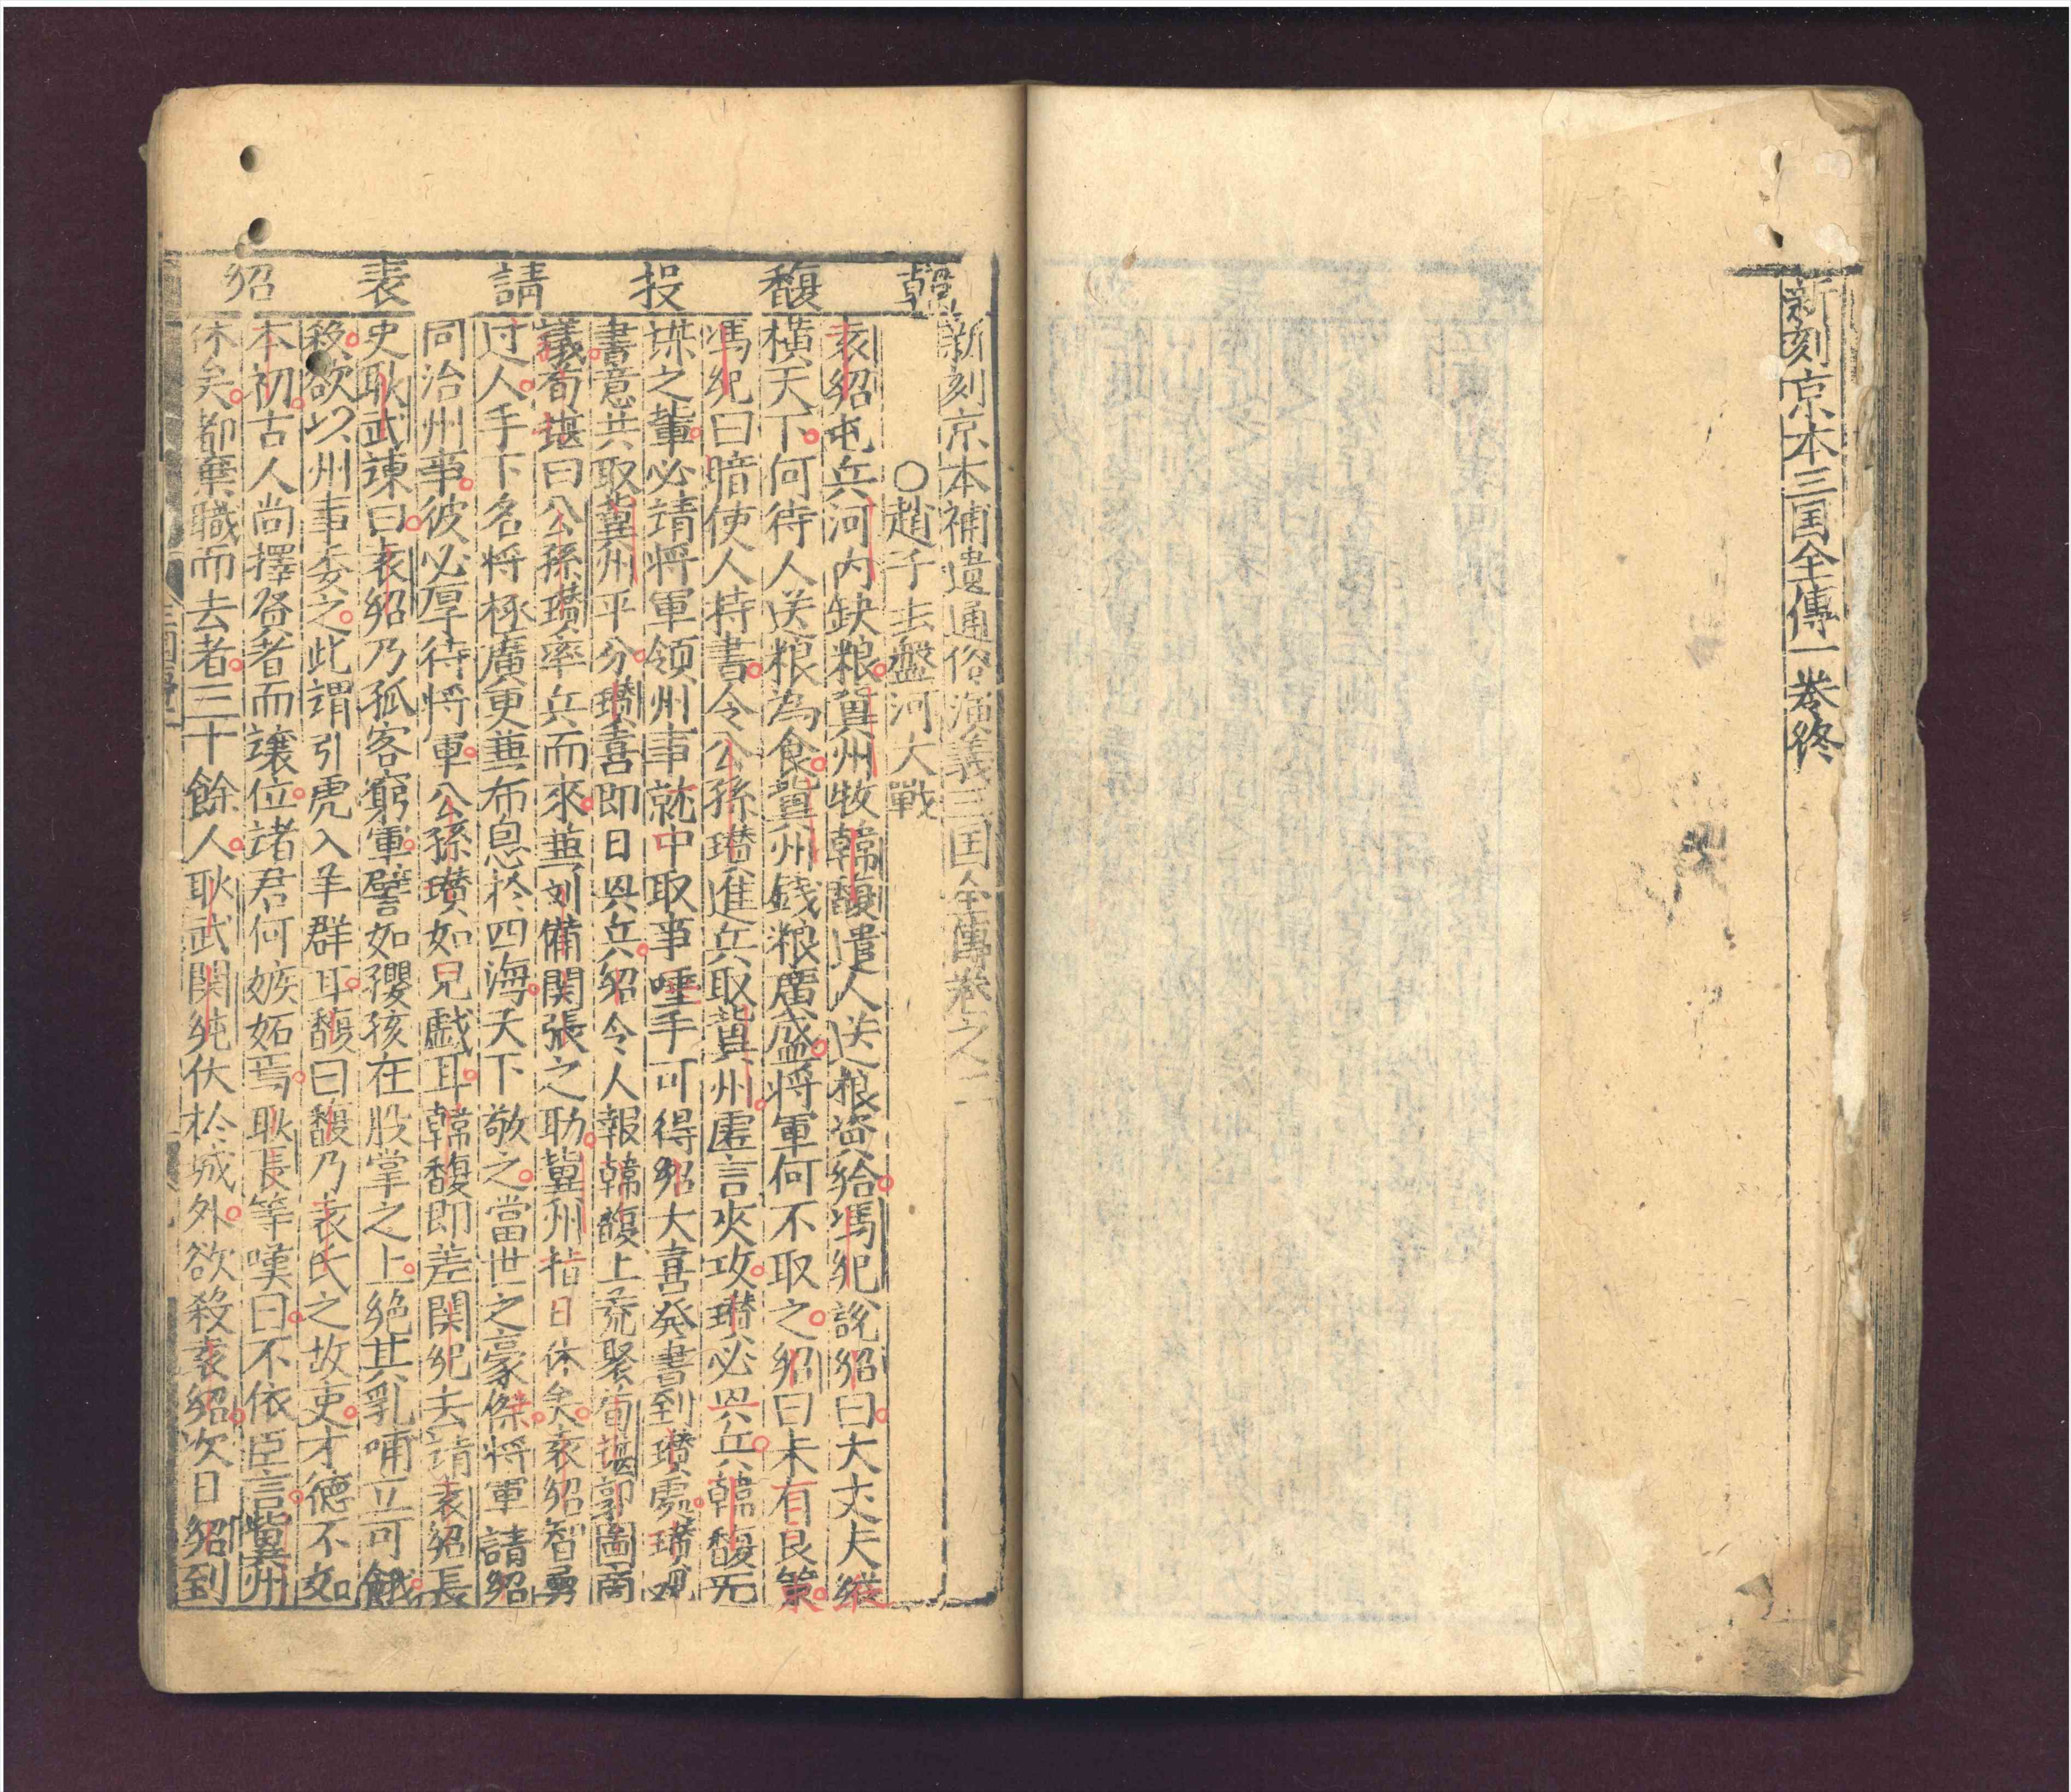 新刻京本三国全傳一巻终
韓馥投請袁紹
新刻京本補遺通俗演義三国全傳巻之二
○趙子去盤河大戰
袁紹屯兵河内缺粮冀州牧韓馥遣人送粮資給馮紀說紹曰大丈夫縱
横天下何待人送粮為食冀州錢粮廣盛将軍何不取之紹曰未有良策
馮紀曰暗使人持書令公孫瓉進兵取冀州虛言夾攻瓉必具兵韓馥无
謀之軰必請将軍领州事就中取事唾手可得紹大喜発書到瓉處瓉見
書意共取冀州平分瓉喜即日具兵紹令人報韓馥上慌聚荀堪郭圖商
議荀堪曰公孫瓉率兵而來兼刘備関張之助冀州指日休矣袁紹智勇
过人手下名将極廣更兼布息於四海天下敬之當世之豪傑将軍請紹
同治州事彼必厚待将軍公孫瓉如兒戯耳韓馥即差関紀去請袁紹長
史耿武諌曰袁紹乃孤客窮軍譬如孾孩在股掌之上绝其乳哺立可餓
移欲以州事委之此謂引虎入羊群耳馥曰馥乃袁氏之故吏才德不如
本初古人尚擇贤者而讓位諸君何嫉妬焉耿長等嘆曰不依臣言冀州
休矣都棄職而去者三十餘人耿武関純伏於城外欲殺袁紹次日紹到